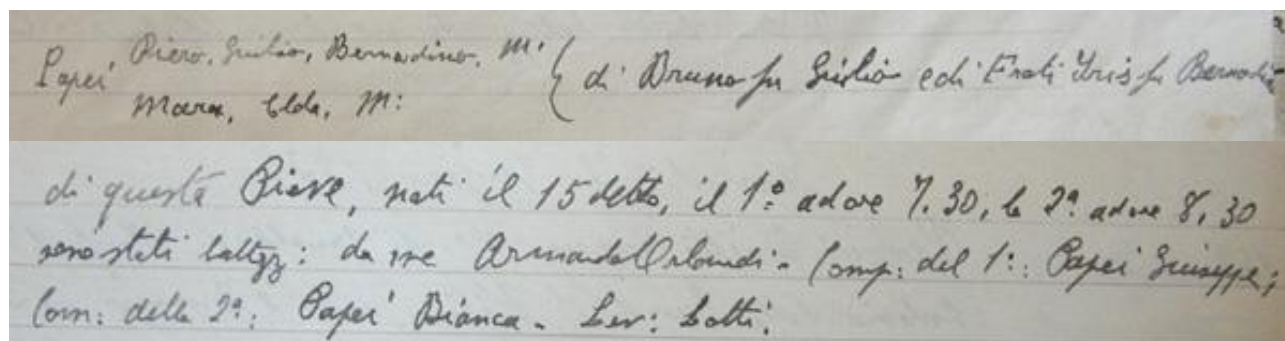 Papei Piero, Giulio, Bernardino, M: { di Bruno fu Giulio e di Frati Iris fu Bernardi
Mara, Elda, M:
di questa Pieve, nati il 15 detto, il 1º ad ore 7.30, la 2ª ad ore 8,30
sono stati battezz: da me Armando Orlandi - Comp: del 1º: Papei Giuseppe;
Com: della 2ª: Papei Bianca - Lev: Lotti.